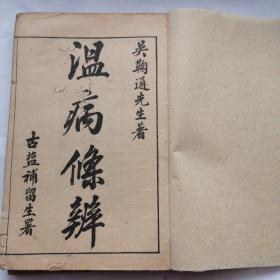 吳鞠通先生著
溫病條辨
古盐補留生署